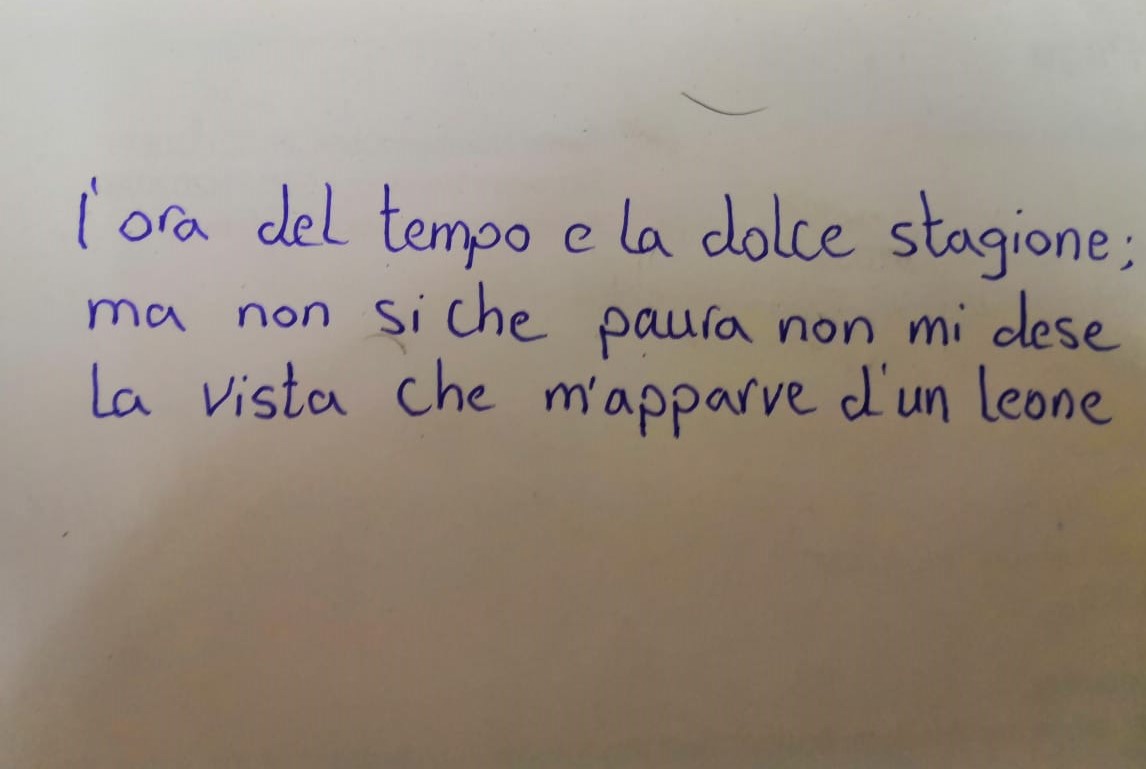 l'ora del tempo e la dolce stagione;
ma non si che paura non mi dese
la vista che m'apparve d'un leone